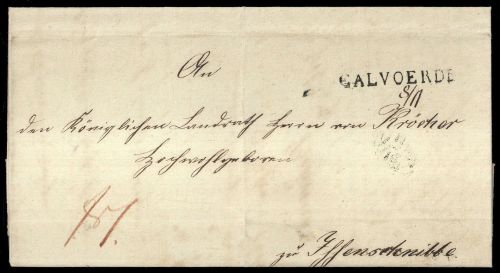 An
CALVOERDE
8/11
den Königlichen Landrath Herrn von Kröcher
Hochwohlgeboren
zu Isenschnibbe.